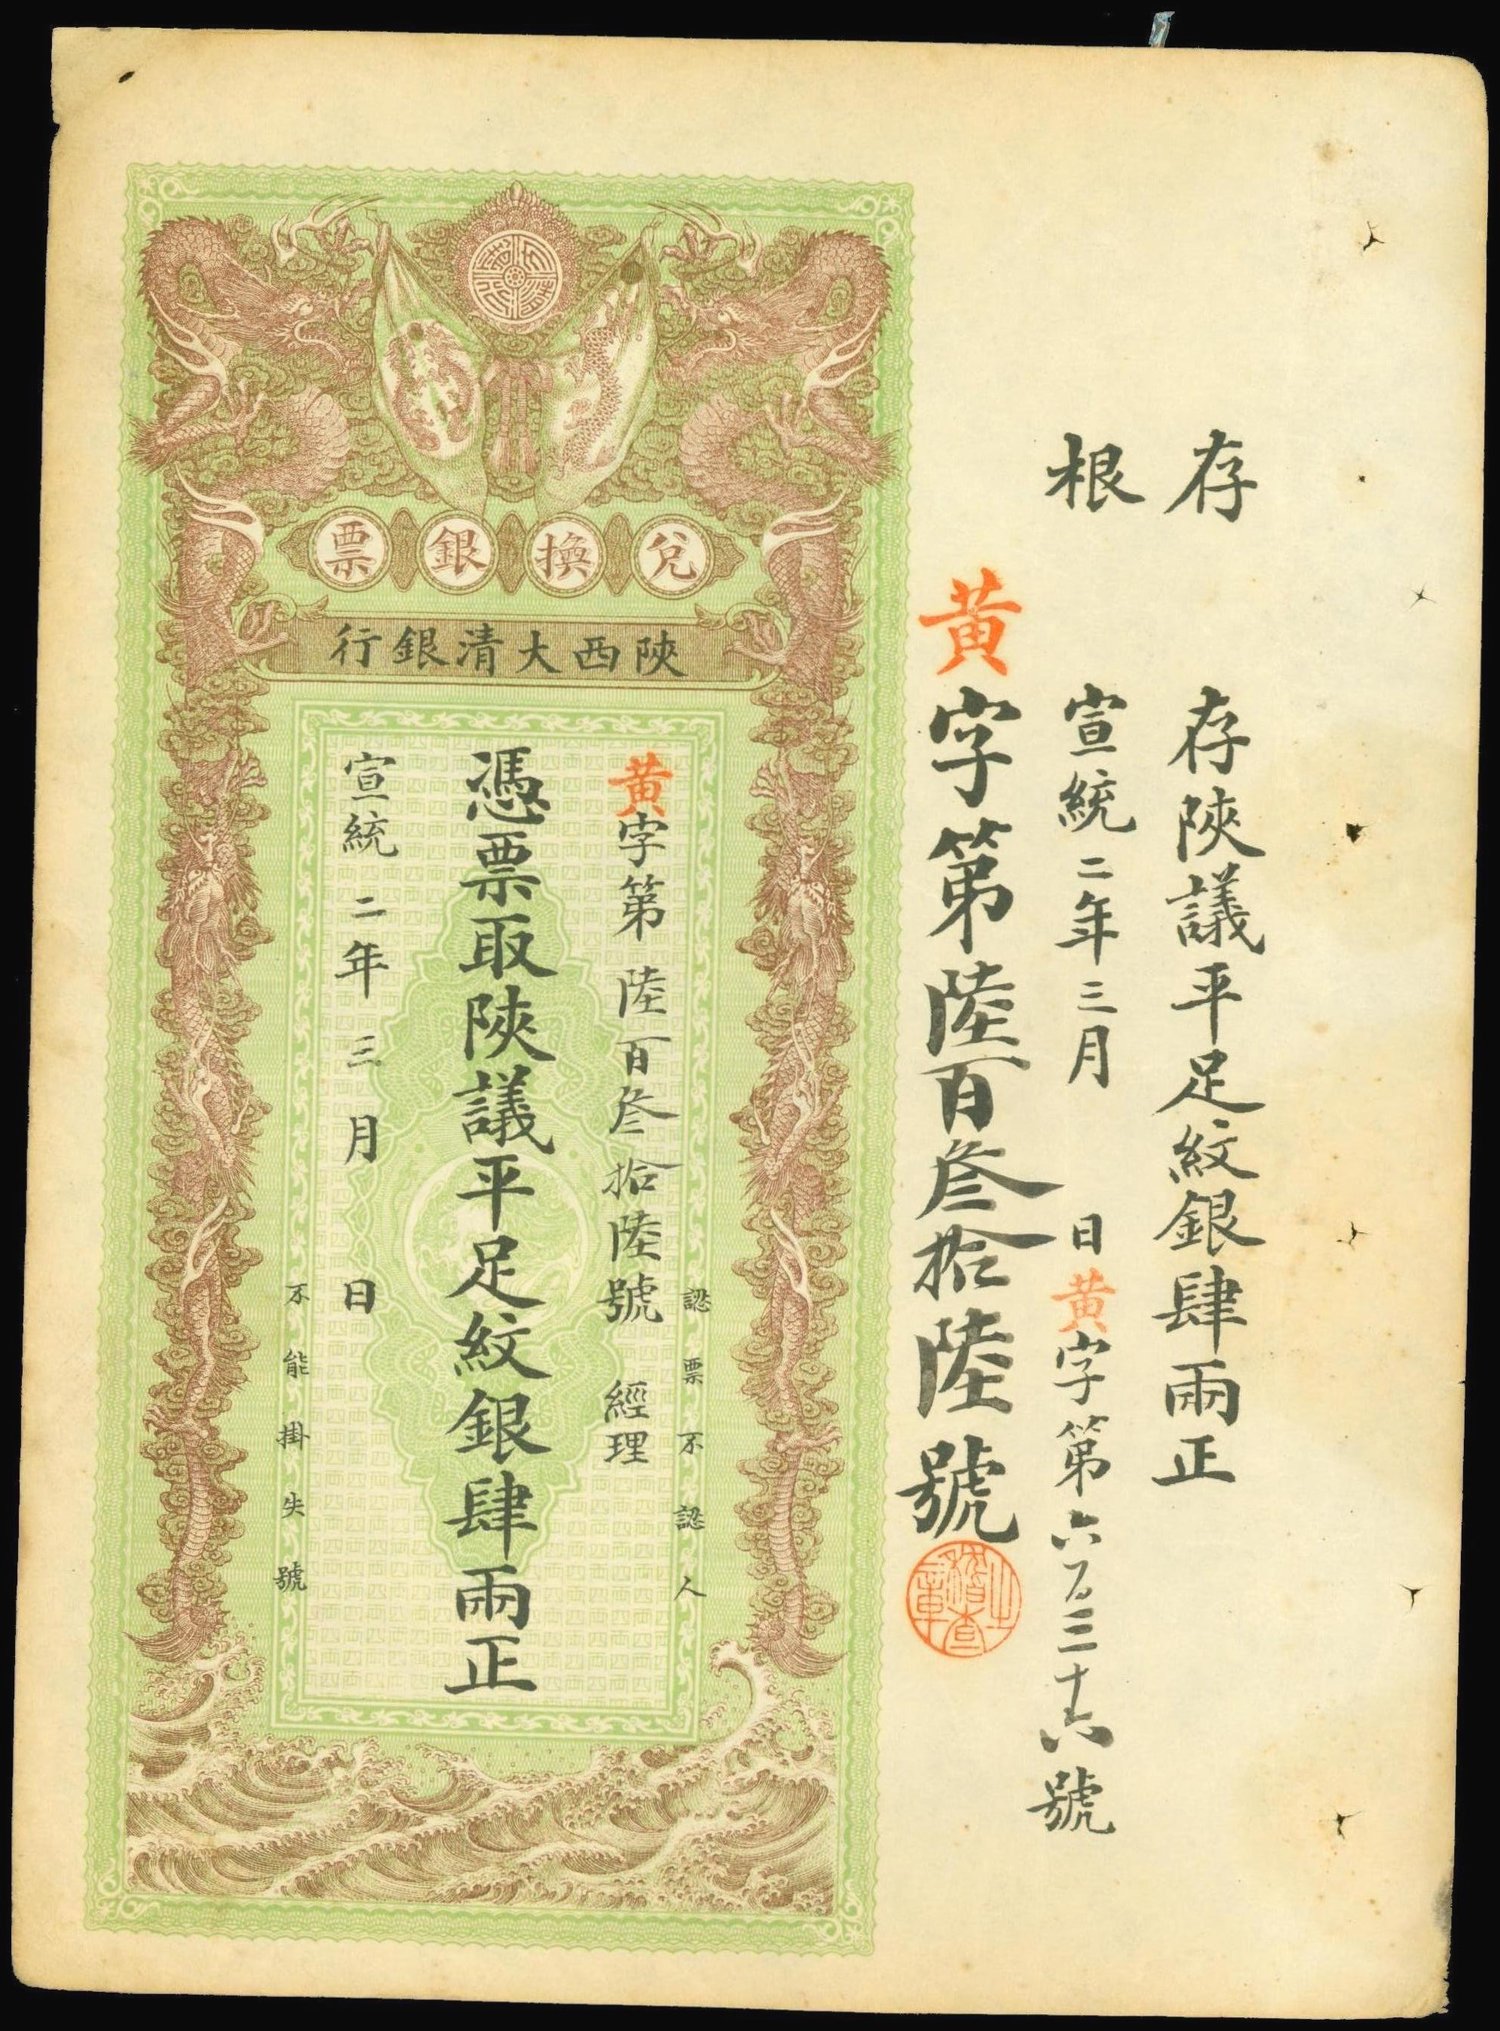 存根
存陝議平足紋銀肆兩正
宣統二年三月 日黃字第六百三十六號
黃字第陸百叁拾陸號
兌換銀票
陝西大清銀行
認票不認人
黃字第陸百叁拾陸號 經理
憑票取陝議平足紋銀肆兩正
宣統二年三月 日
不能掛失號